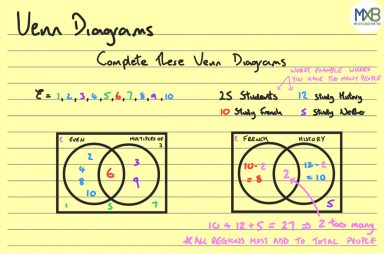 Venn Diagrams
MXB
Complete these Venn Diagrams
WORST EXAMPLE WHERE
YOU HAVE TOO MANY PEOPLE
ξ = 1, 2, 3, 4, 5, 6, 7, 8, 9, 10
25 Students 12 Study History
10 Study French 5 Study Neither
ξ EVEN MULTIPLES OF
3
2
4
8
10
6
3
9
1 5 7
ξ FRENCH HISTORY
10 - 2
= 8
2
12 - 2
= 10
5
10 + 12 + 5 = 27 ⇒ 2 too many
* ALL REGIONS MUST ADD TO TOTAL PEOPLE